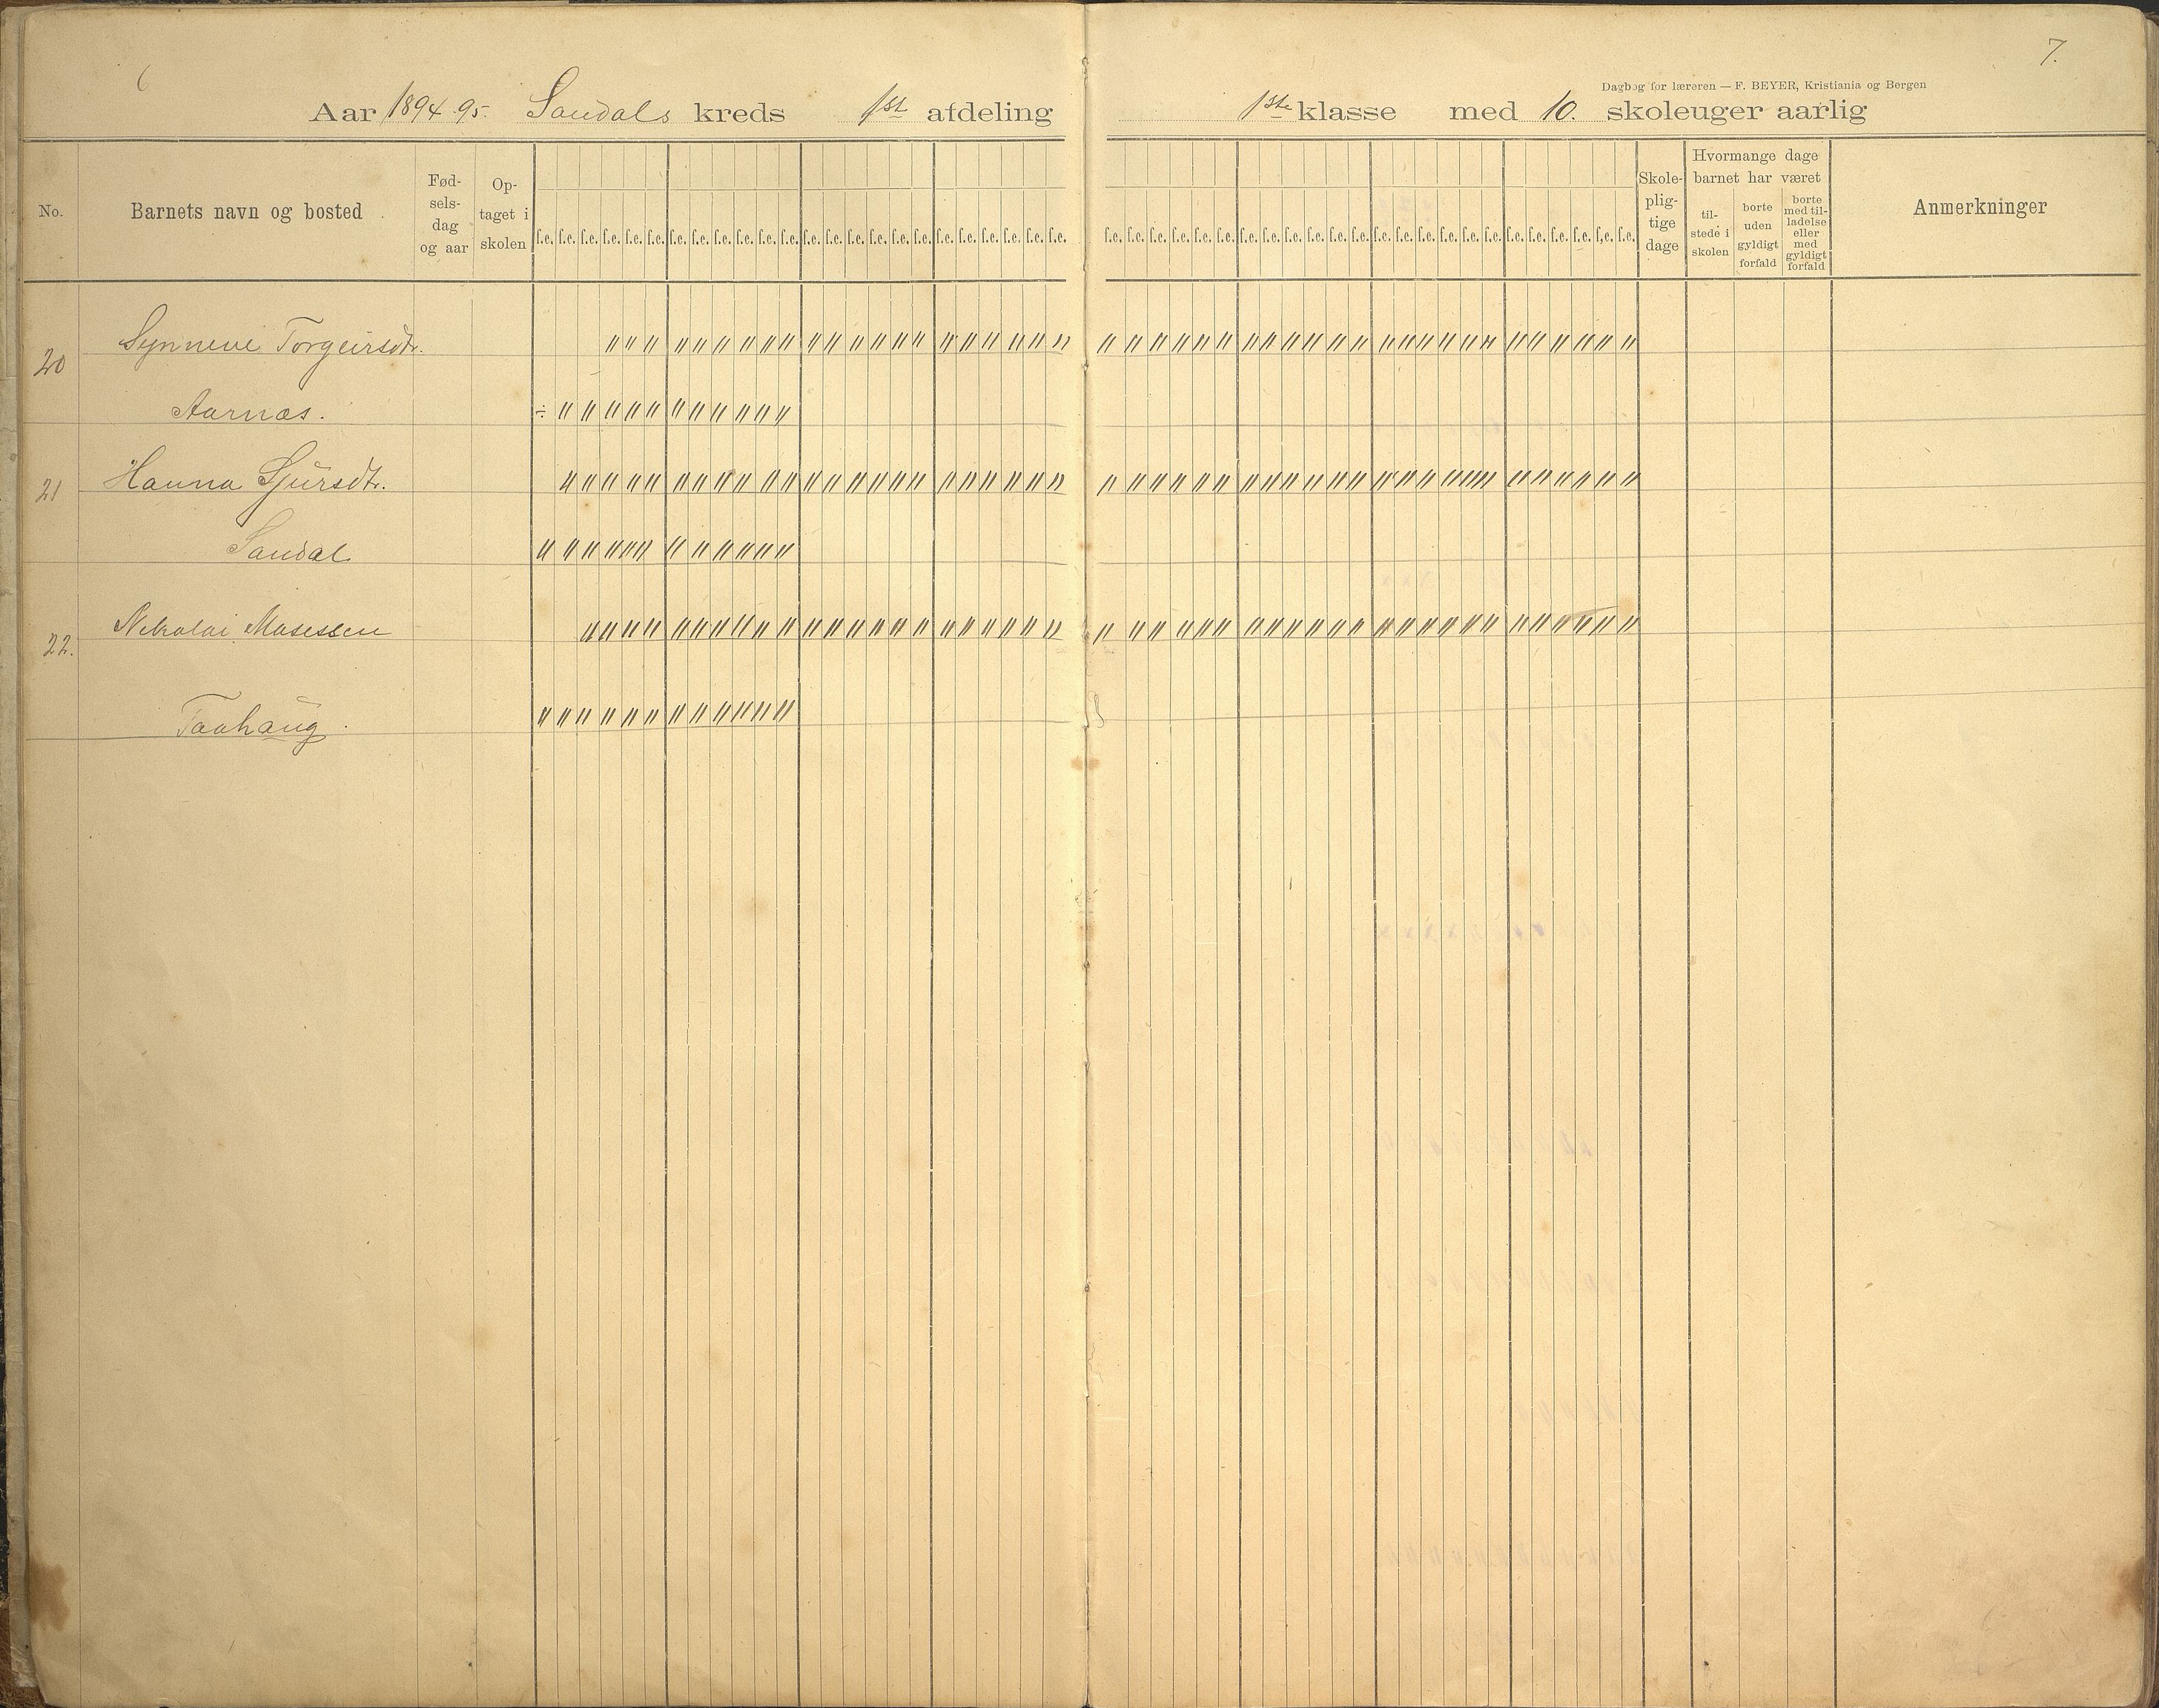 6
7.
Dagbog for læreren — F. BEYER, Kristiania og Bergen
Aar 1894-95. Sandals kreds 1st afdeling 1ste klasse med 10. skoleuger aarlig
No.
Barnets navn og bosted
Fød-
sels-
dag
og aar
Op-
taget i
skolen
f.e. f.e. f.e. f.e. f.e. f.e. f.e. f.e. f.e. f.e. f.e. f.e. f.e. f.e. f.e. f.e. f.e. f.e. f.e. f.e. f.e. f.e. f.e. f.e.
f.e. f.e. f.e. f.e. f.e. f.e. f.e. f.e. f.e. f.e. f.e. f.e. f.e. f.e. f.e. f.e. f.e. f.e. f.e. f.e. f.e. f.e. f.e. f.e.
Skole-
plig-
tige
dage
Hvormange dage
barnet har været
til-
stede i
skolen
borte
uden
gyldigt
forfald
borte
med til-
ladelse
eller
med
gyldigt
forfald
Anmerkninger
20 Synneve Torgeirsdtr.
Aarnæs.
21 Hanna Sjursdtr.
Sandal
22. Nikolai Mosessen
Taahaug.